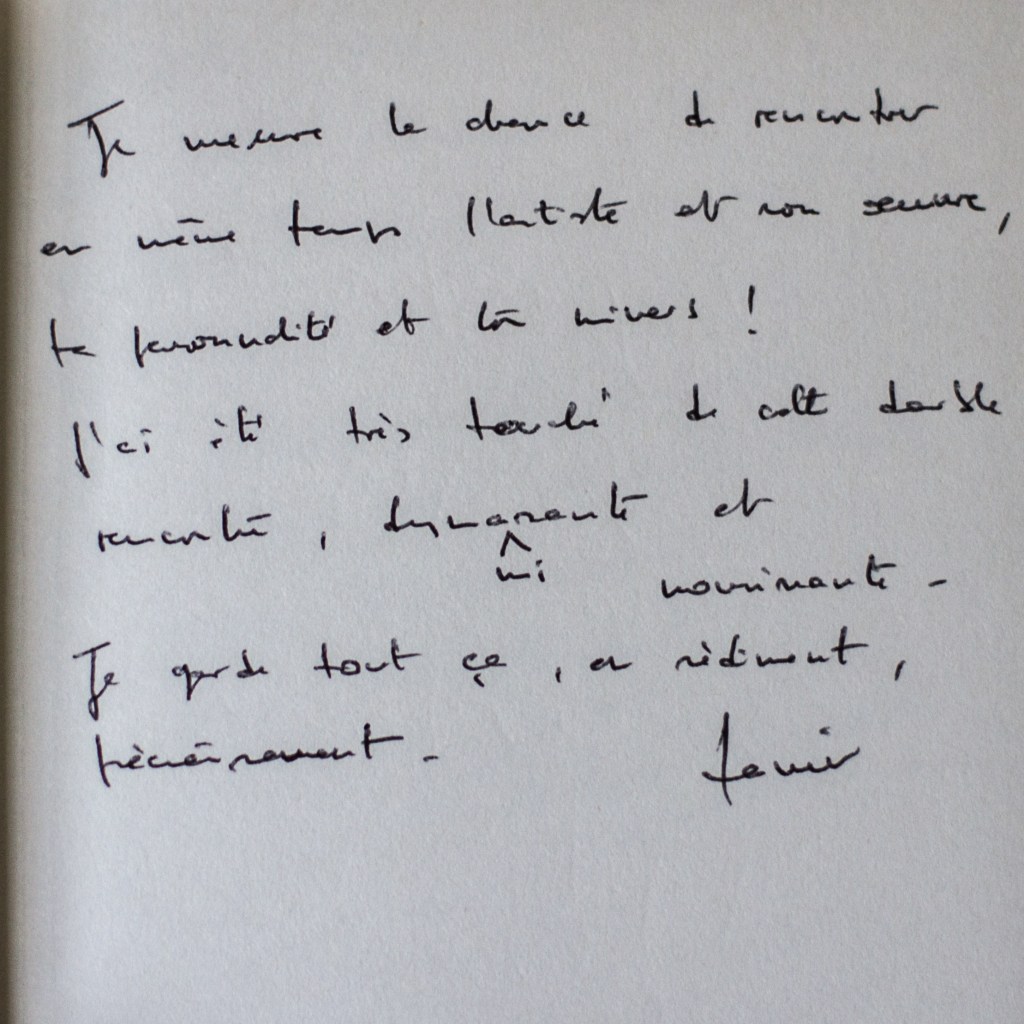 Je mesure la chance de rencontrer
en même temps l'artiste et son œuvre,
ta personnalité et ton univers !
J'ai été très touché de cette double
rencontre, dynamisante et
nourrissante -
Je garde tout ça, en sédiment,
précieusement -